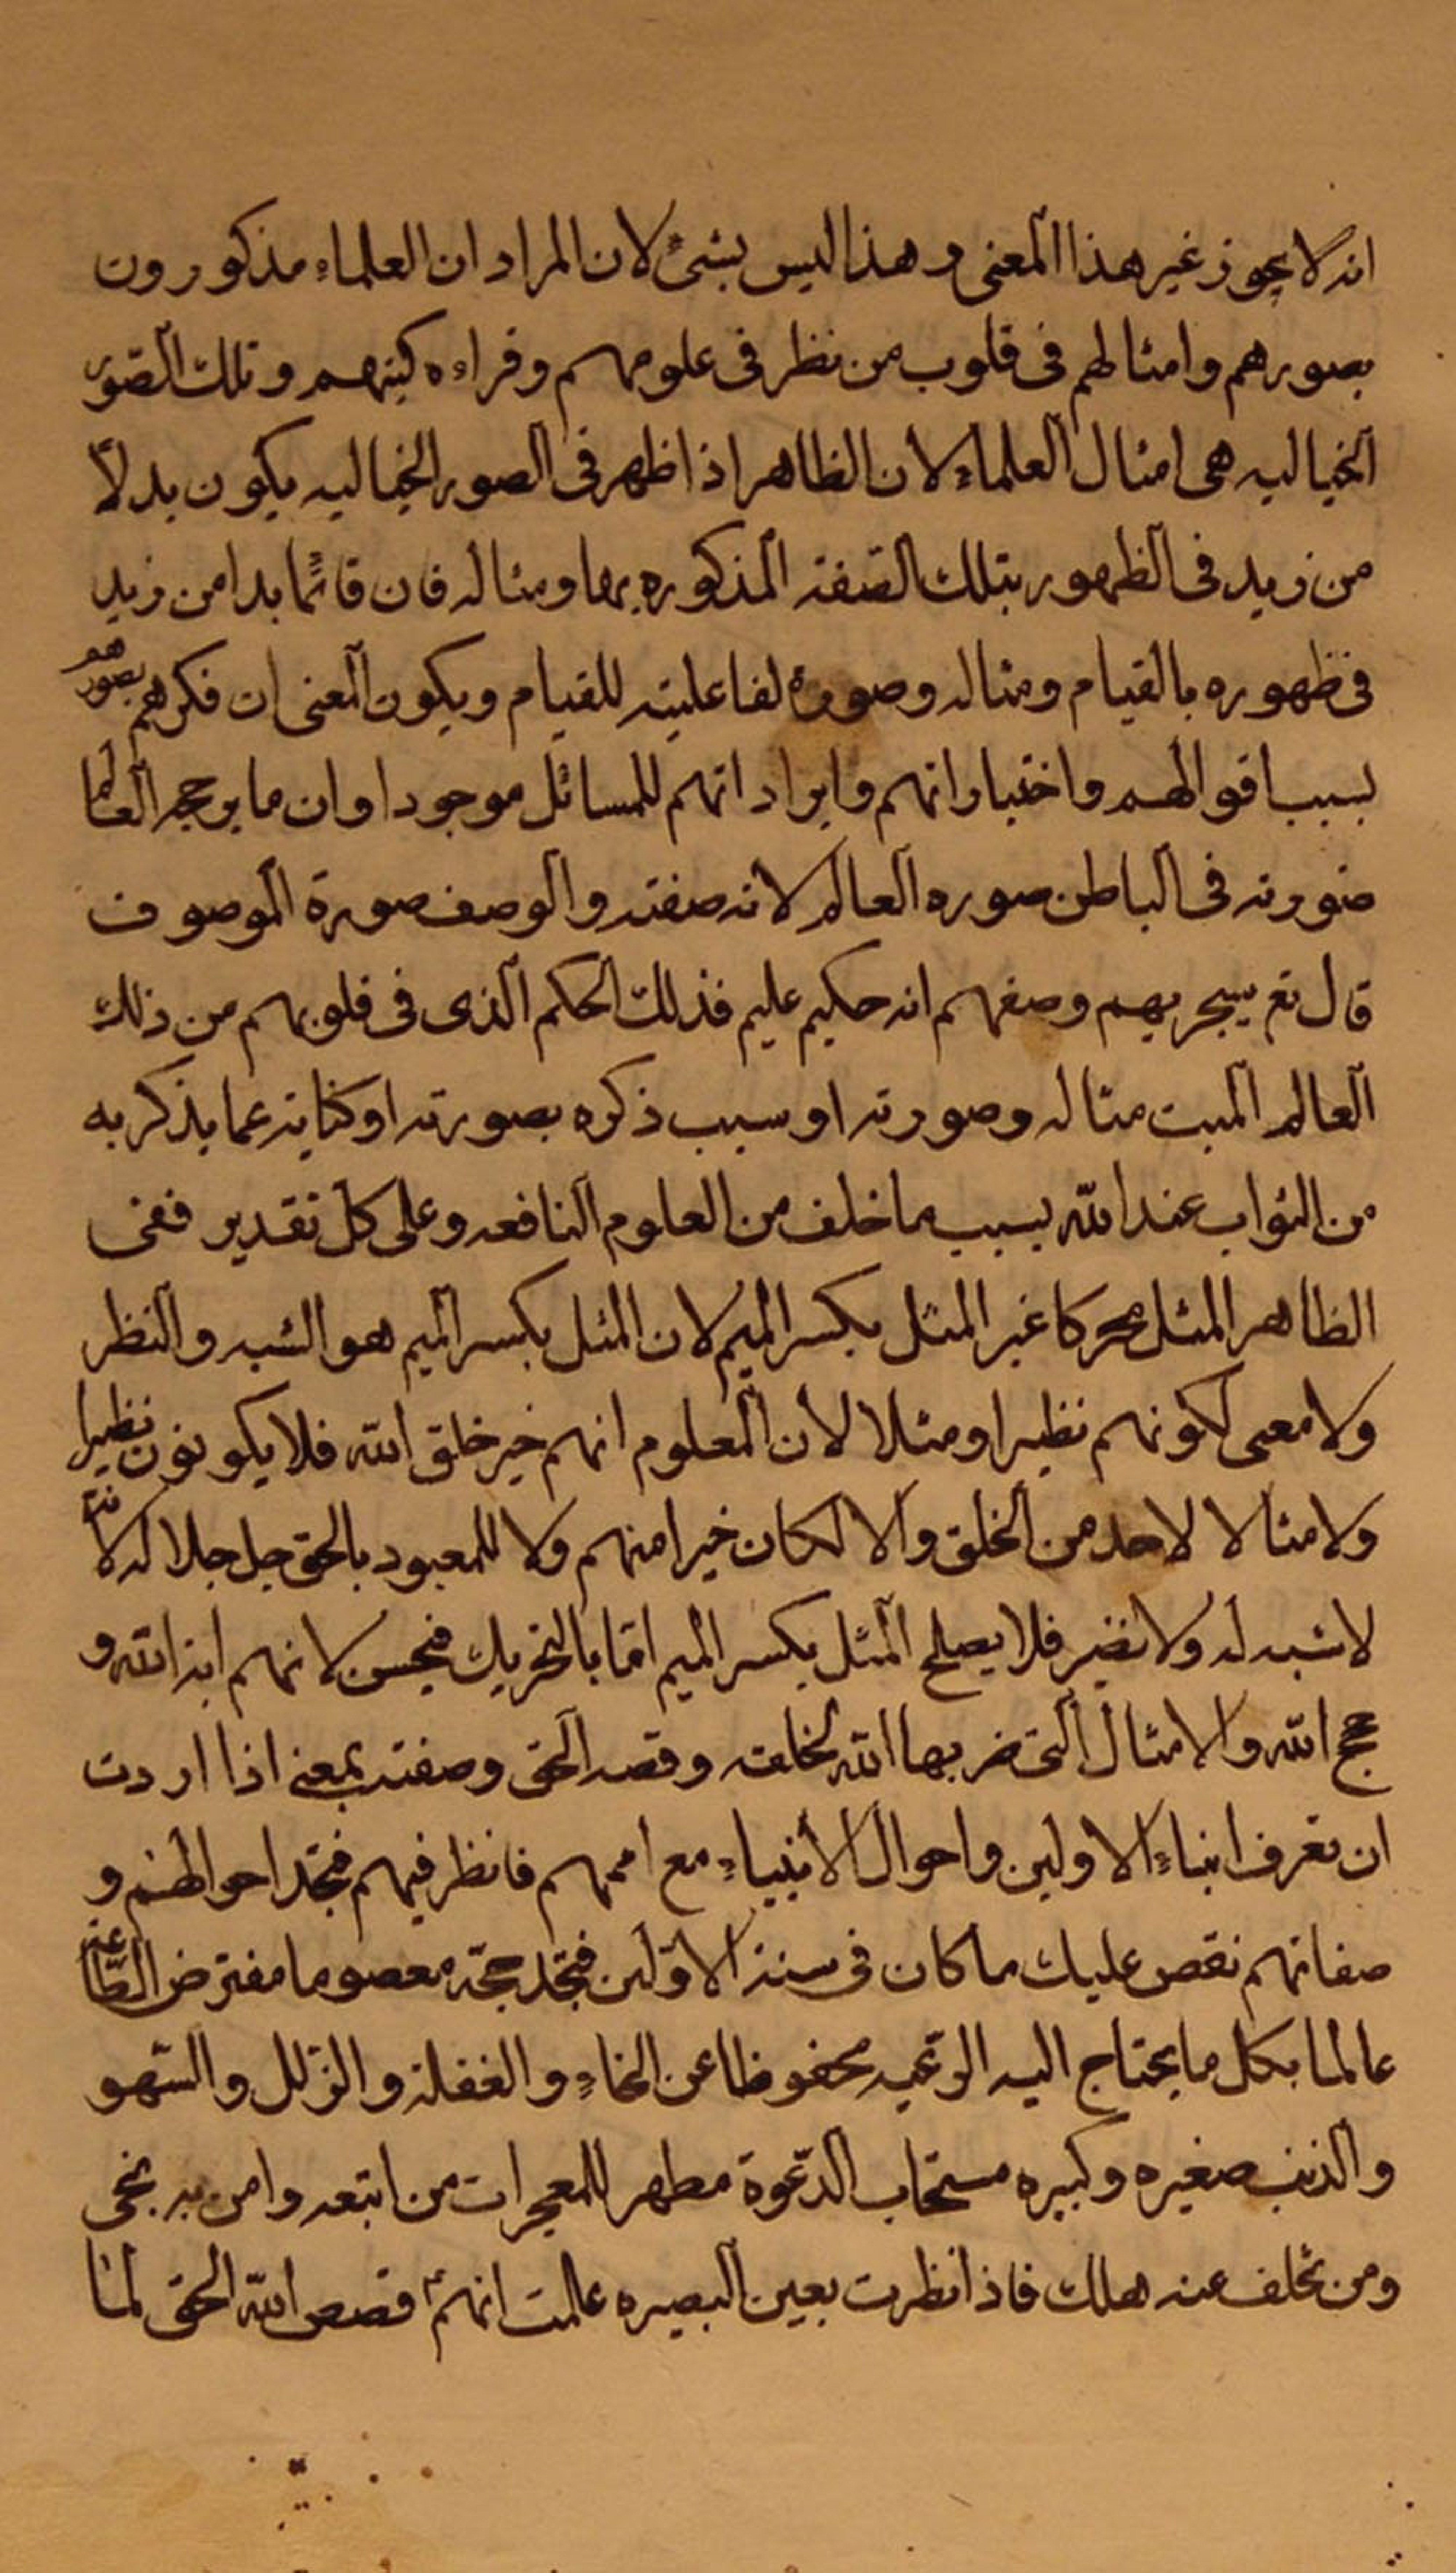 انه لا يجوز غير هذا المعنى وهذا ليس بشئ لان المراد ان العلماء مذكورون
بصورهم وامثالهم فى قلوب من نظر فى علومهم وقراءه كتبهم وتلك الصّور
الخياليه هى امثال العلماء لان الظاهر اذا ظهر فى الصور الخياليه يكون بدلاً
من زيد فى الظهور بتلك الصّفة المذكوره بها ومثاله فان قائمًا بدا من زيد
فى ظهوره بالقيام ومثاله وصورة لفاعليته للقيام ويكون المعنى ان فكرهم بصورهم
بسبب اقوالهم واختياراتهم وايراداتهم للمسائل موجودا وان ما يرجحه العالم
صورته فى الباطن صوره العالم لانه صفته والوصف صورة الموصوف
قال تع سيجزيهم وصفهم انه حكيم عليم فذلك الحكم الذى فى قلوبهم من ذلك
العالم الميت مثاله وصورته او سبب ذكره بصورته او كناية عما يذكر به
من الثواب عند الله بسبب ما خلف من العلوم النافعه وعلى كل تقدير ففى
الظاهر المثل محركا غير المثل بكسر الميم لان المثل بكسر الميم هو الشبه والنظر
ولا معنى لكونهم نظيرا ومثلا لان المعلوم انهم خير خلق الله فلا يكونون نظيرا
ولا مثالا لاحد من الخلق والا لكان خيرا منهم ولا للمعبود بالحق جل جلاله لانه
لا شبه له ولا نضير فلا يصلح المثل بكسر الميم امّا بالتحريك فيحسن لانهم اية الله و
حجج الله والامثال التى ضربها الله لخلقه وقصد الحق وصفته بمعنى اذا اردت
ان تعرف انباء الاولين واحوال الانبياء مع اممهم فانظر فيهم فتجد احوالهم و
صفاتهم نقص عليك ما كان فى سنة الاوّلين فتجد حجّة معصوما مفترض الطّاعة
عالما بكل ما يحتاج اليه الرّعيه محفوظا عن الخطاء والغفلة والزّلل والسّهو
والذنب صغيره وكبيره مستجاب الدّعوة مظهر للمعجزات من اتبعه وامن به نجى
ومن تخلف عنه هلك فاذا نظرت بعين البصيره علمت انهم قصص الله الحق لمنا